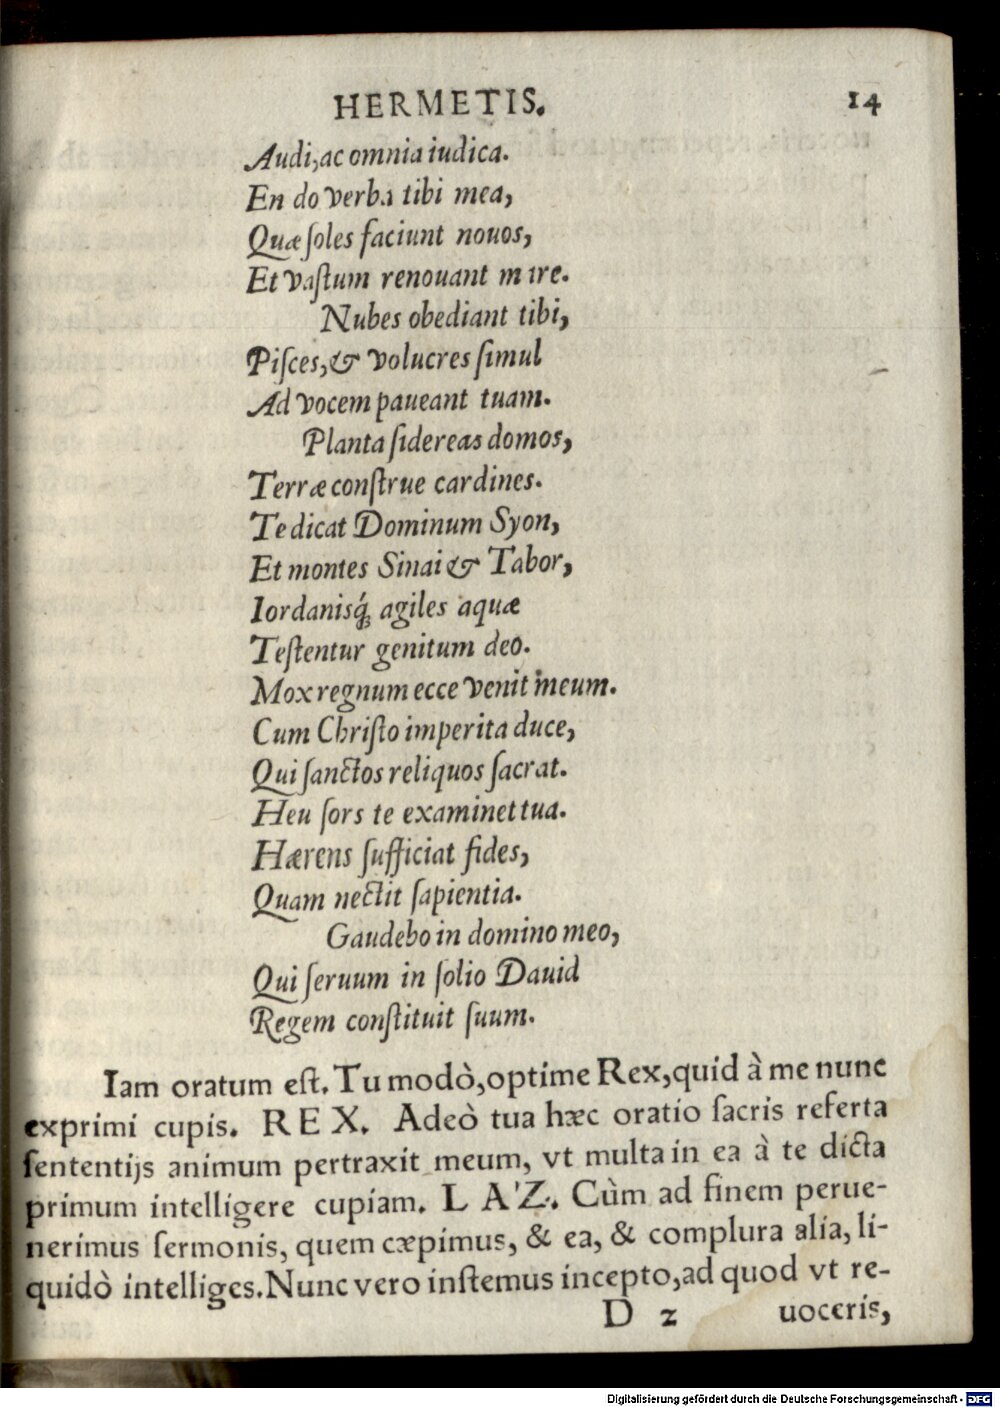 HERMETIS. 14
Audi, ac omnia iudica.
En do verba tibi mea,
Quæ ſoles faciunt nouos,
Et vaſtum renouant mare.
Nubes obediant tibi,
Piſces, & volucres ſimul
Ad vocem paueant tuam.
Planta ſidereas domos,
Terræ conſtrue cardines.
Te dicat Dominum Syon,
Et montes Sinai & Tabor,
Iordanisq́ꝫ agiles aquæ
Teſtentur genitum deo.
Mox regnum ecce venit meum.
Cum Chriſto imperita duce,
Qui ſanctos reliquos ſacrat.
Heu ſors te examinet tua.
Hærens ſufficiat fides,
Quam nectit ſapientia.
Gaudebo in domino meo,
Qui ſeruum in ſolio Dauid
Regem conſtituit ſuum.
Iam oratum eſt. Tu modò, optime Rex, quid à me nunc
exprimi cupis. REX. Adeò tua hæc oratio ſacris referta
ſententijs animum pertraxit meum, vt multa in ea à te dicta
primum intelligere cupiam. LAZ. Cùm ad finem perue-
nerimus ſermonis, quem cæpimus, & ea, & complura alia, li-
quidò intelliges. Nunc vero inſtemus incepto, ad quod vt re-
D 2 uoceris,
Digitalisierung gefördert durch die Deutsche Forschungsgemeinschaft - DFG